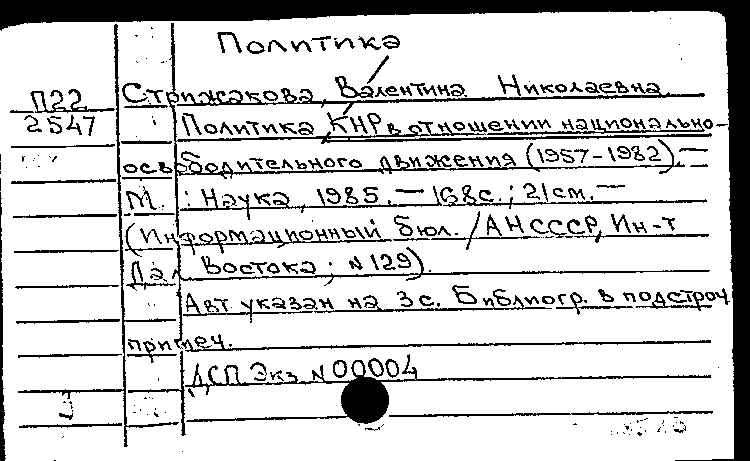 Политика
П22 Стрижакова, Валентина Николаевна.
2547 Политика КНР в отношении национально-
освободительного движения (1957-1982).—
М. : Наука, 1985. — 168с. ; 21см. —
(Информационный бюл. / АН СССР, Ин-т
Дал. Востока ; N 129).
Авт указан на 3 с. Библиогр. в подстроч
примеч.
ДСП Экз. N 00004